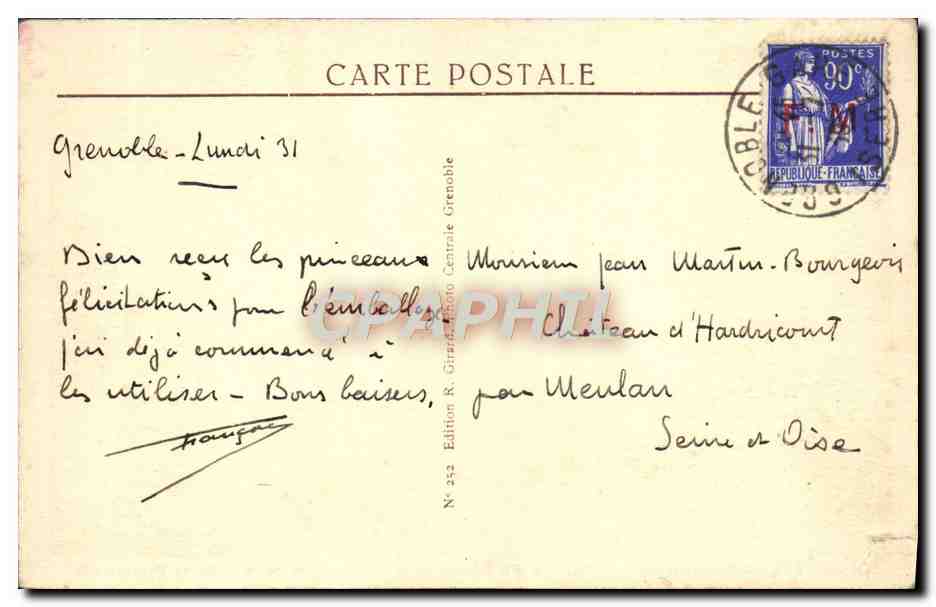 CARTE POSTALE
POSTES
90c
F. M
REPUBLIQUE-FRANÇAISE
Grenoble - Lundi 31
Bien reçu les pinceaux
félicitations pour l'emballage
j'ai déjà commencé à
les utiliser - Bons baisers,
François
N° 252 Edition R. Girard, Photo Centrale Grenoble
Monsieur Jean Martin-Bourgeois
Chateau d'Hardricourt
par Meulan
Seine et Oise
CPAPHIL